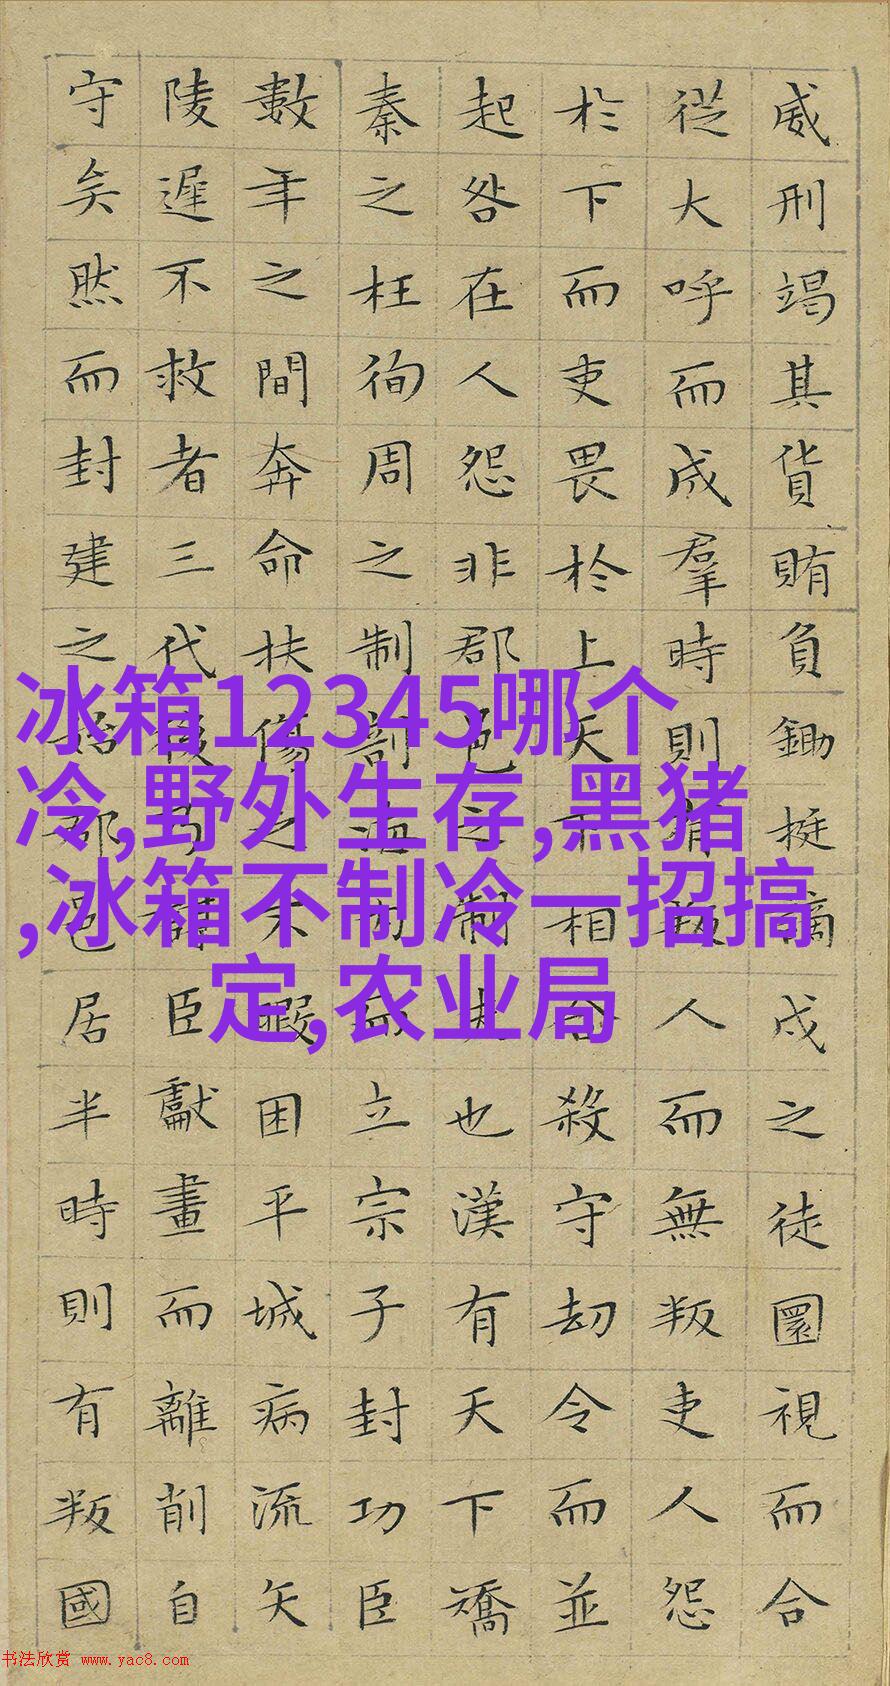 威刑竭其貨賄負鋤挺謫戍之徒圜視而合
從大呼而成羣時則有叛人而無叛吏人怨
於下而吏畏於上天下相合殺守劫令而並
起咎在人怨非郡邑之制失也漢有天下矯
秦之枉徇周之制剖海內而立宗子封功臣
數年之間奔命扶傷之不暇困平城病流矢
陵遲不救者三代後乃謀臣獻畫而離削自
守矣然而封建之始郡邑居半時則有叛國
冰箱12345哪个
冷,野外生存,黑猪
,冰箱不制冷一招搞
定,农业局
书法欣赏 www.yac8.com